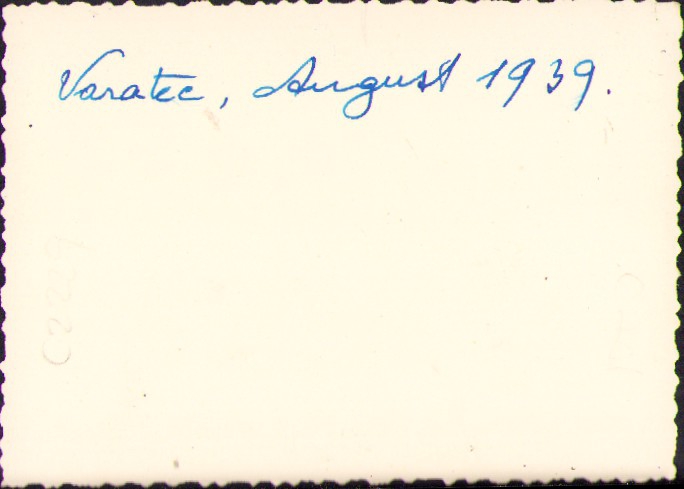 Varatec, August 1939.